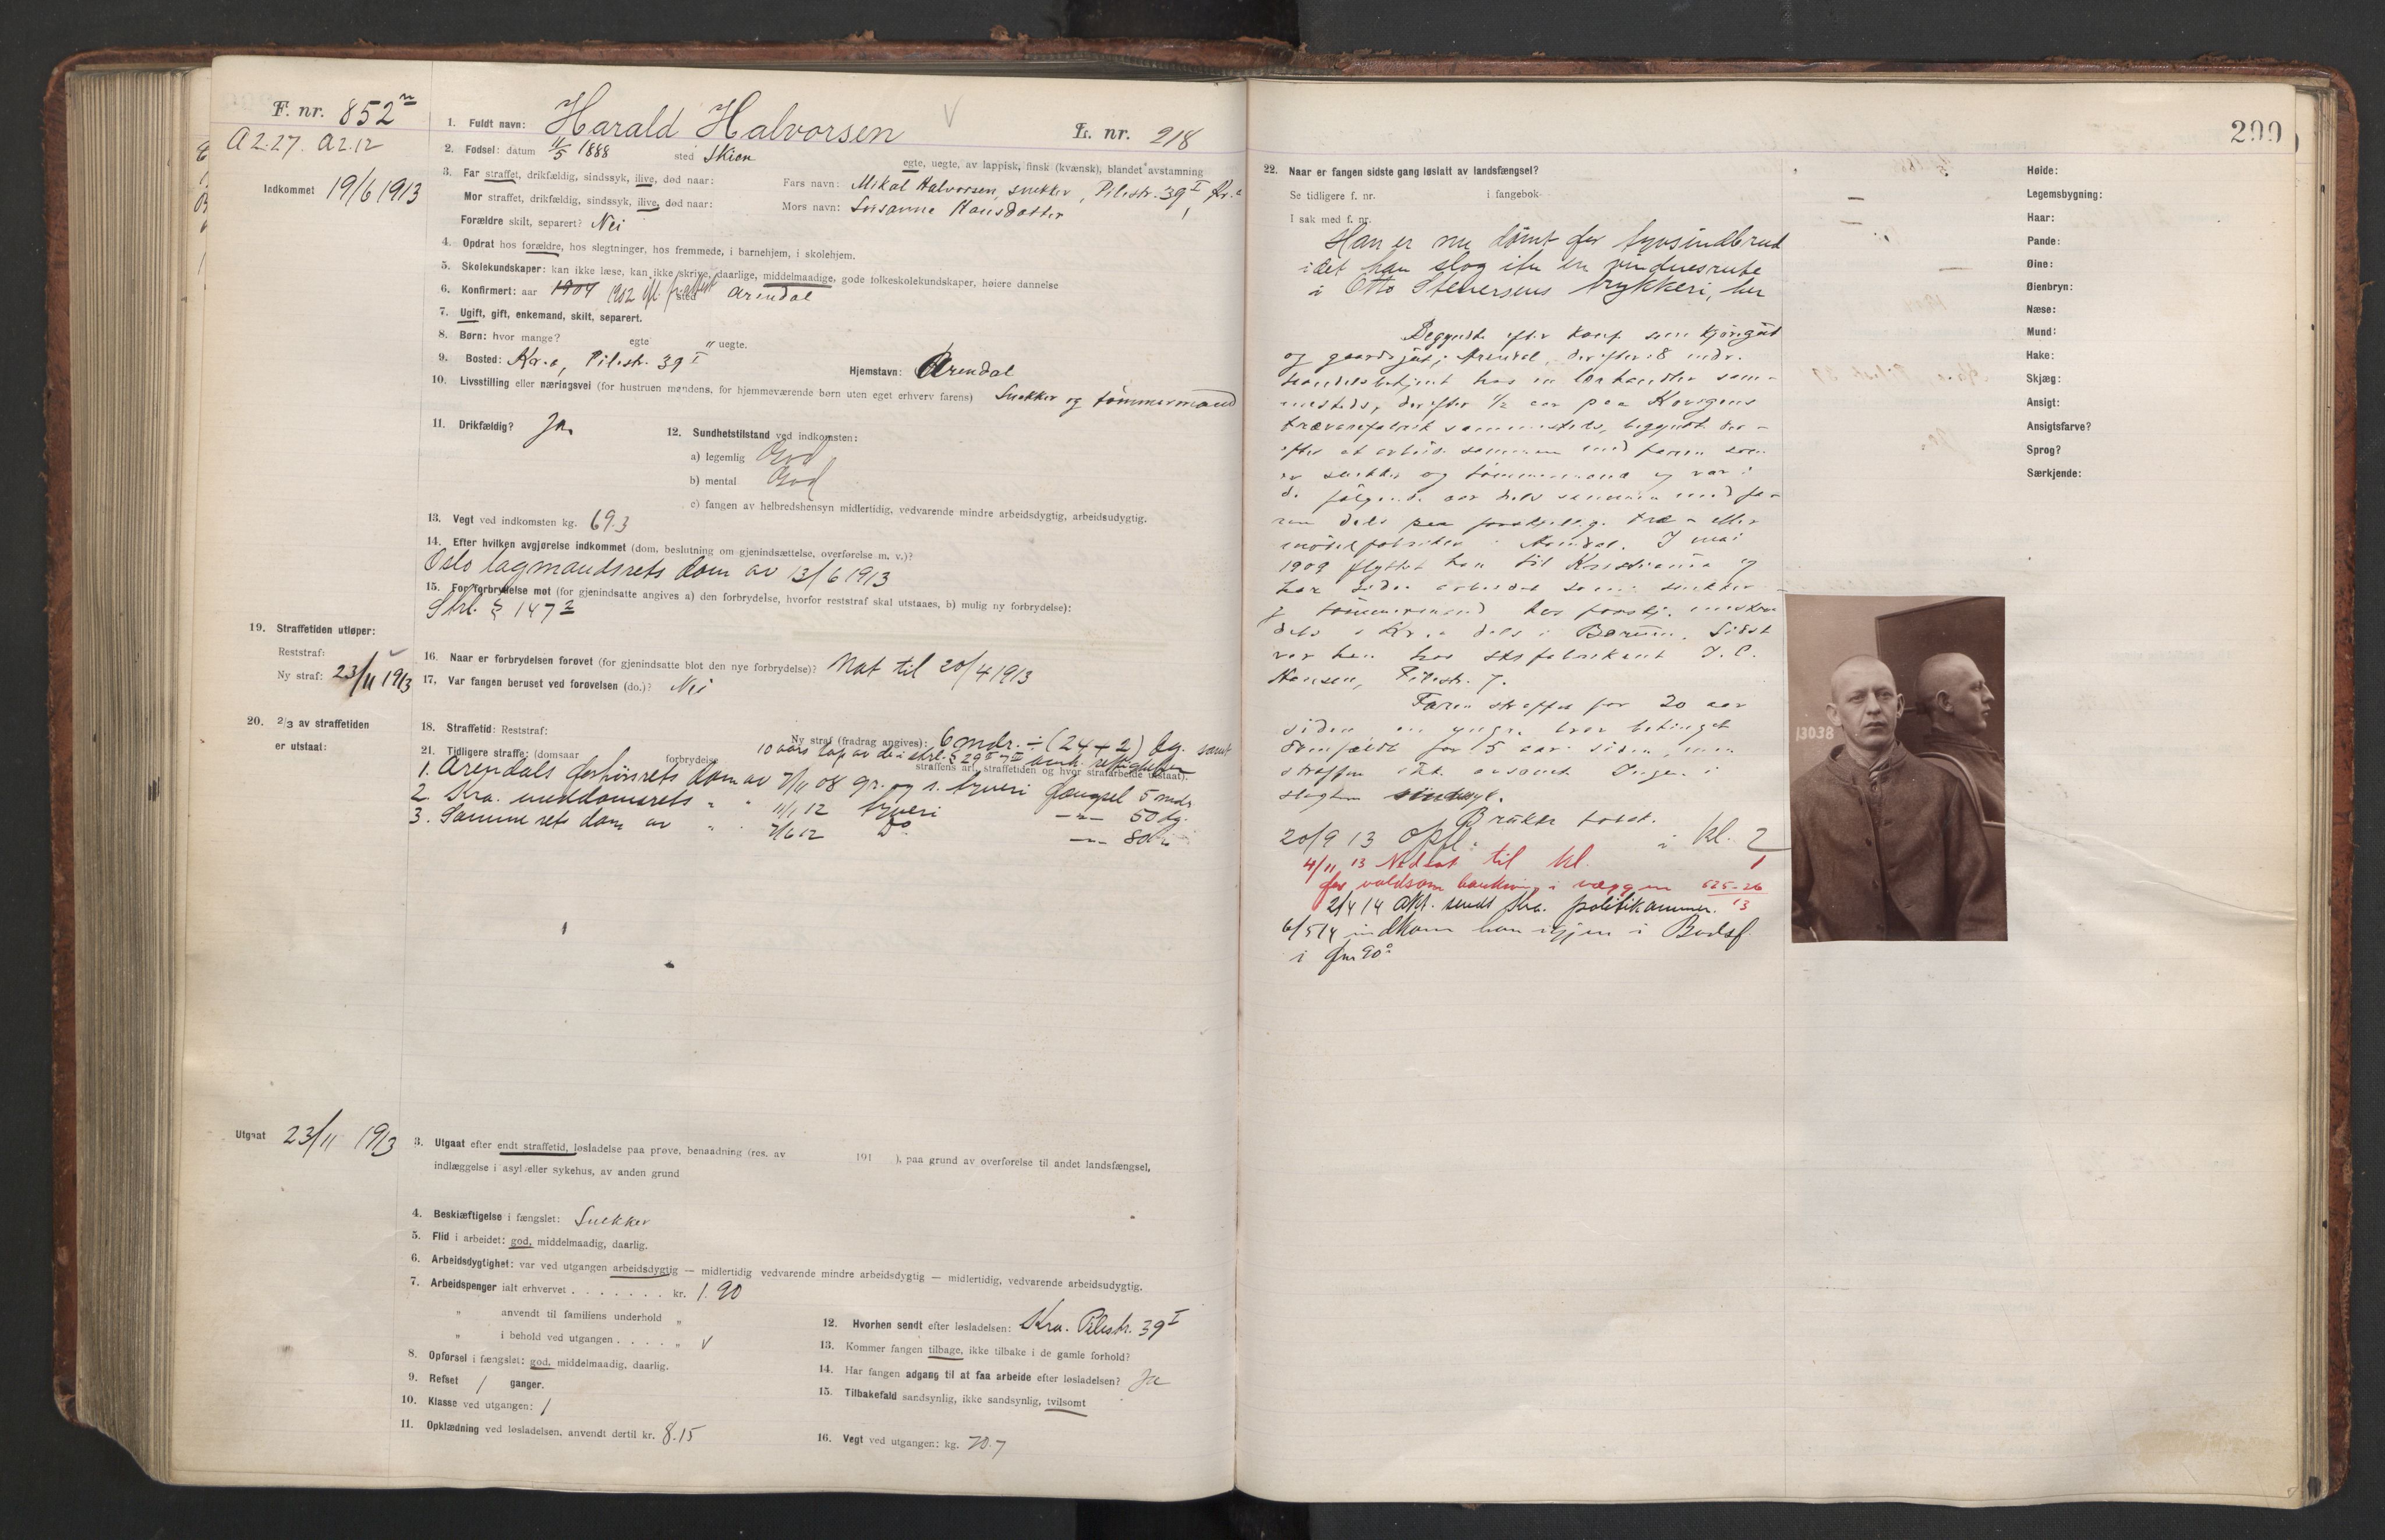 F. nr. 852
A 2.27. A 2.12
Indkommet 19/6 1913
1. Fuldt navn: Harald Halvorsen V
L. nr. 218
2. Fødsel: datum 11/5 1888 sted Skien
egte, uegte, av lappisk, finsk (kvænsk), blandet avstamning
3. Far straffet, drikfældig, sindssyk, ilive, død naar:
Fars navn: Mikal Halvorsen, snekker, Pilestr. 39 I, Kr.a
Mor straffet, drikfældig, sindssyk, ilive, død naar:
Mors navn: Susanne Hansdatter
Forældre skilt, separert? Nei
4. Opdrat hos forældre, hos slegtninger, hos fremmede, i barnehjem, i skolehjem.
5. Skolekundskaper: kan ikke læse, kan ikke skrive, daarlige, middelmaadige, gode folkeskolekundskaper, høiere dannelse
6. Konfirmert: aar 1904 1902 sted Arendal
7. Ugift, gift, enkemand, skilt, separert.
8. Børn: hvor mange? egte " uegte.
9. Bosted: Kr.a, Pilestr. 39 I
Hjemstavn: Arendal
10. Livsstilling eller næringsvei (for hustruen mandens, for hjemmeværende børn uten eget erhverv farens) Snekker og tømmermand
11. Drikfældig? Ja.
12. Sundhetstilstand ved indkomsten:
a) legemlig God
b) mental God
c) fangen av helbredshensyn midlertidig, vedvarende mindre arbeidsdygtig, arbeidsudygtig.
13. Vegt ved indkomsten kg. 69.3
14. Efter hvilken avgjørelse indkommet (dom, beslutning om gjenindsættelse, overførelse m. v.)?
Oslo lagmandsrets dom av 13/6 1913
15. For forbrydelse mot (for gjenindsatte angives a) den forbrydelse, hvorfor reststraf skal utstaaes, b) mulig ny forbrydelse):
Strl. § 147 2
19. Straffetiden utløper:
Reststraf:
Ny straf: 23/11 1913
16. Naar er forbrydelsen forøvet (for gjenindsatte blot den nye forbrydelse)? Nat til 20/4 1913
17. Var fangen beruset ved forøvelsen (do.)? Nei
20. 2/3 av straffetiden
er utstaat:
18. Straffetid: Reststraf:
Ny straf (fradrag angives): 6 mdr. ÷ (24 + 2) dg. samt
10 aars tap av de i strl. § 29 omh. rettigheter
21. Tidligere straffe: (domsaar forbrydelse straffens art, straffetiden og hvor strafarbeide utstaat).
1. Arendals forhørsrets dom av 7/11 08 gr. og s. tyveri fængsel 5 mdr
2. Kra. meddomsrets " " 11/1 12 tyveri —"— 50 dg.
3. Samme rets dom av " 7/6 12 Do —"— 80 "
Utgaat 23/11 1913
3. Utgaat efter endt straffetid, løsladelse paa prøve, benaadning (res. av 191 ), paa grund av overførelse til andet landsfængsel,
indlæggelse i asyl eller sykehus, av anden grund
4. Beskjæftigelse i fængslet: Snekker
5. Flid i arbeidet: god, middelmaadig, daarlig.
6. Arbeidsdygtighet: var ved utgangen arbeidsdygtig — midlertidig vedvarende mindre arbeidsdygtig — midlertidig, vedvarende arbeidsudygtig.
7. Arbeidspenger ialt erhvervet . . . . . . . kr. 1.90
" anvendt til familiens underhold "
" i behold ved utgangen . . . . " V
8. Opførsel i fængslet: god, middelmaadig, daarlig.
9. Refset 1 ganger.
10. Klasse ved utgangen: 1
11. Opklædning ved løsladelsen, anvendt dertil kr. 8.15
12. Hvorhen sendt efter løsladelsen: Kra. Pilestr. 39 I
13. Kommer fangen tilbage, ikke tilbake i de gamle forhold?
14. Har fangen adgang til at faa arbeide efter løsladelsen? Ja
15. Tilbakefald sandsynlig, ikke sandsynlig, tvilsomt
16. Vegt ved utgangen: kg. 70.7
299
22. Naar er fangen sidste gang løslatt av landsfængsel?
Se tidligere f. nr. i fangebok
I sak med f. nr.
Han er nu dømt for tyvsindbrud
idet han slog itu en vinduesrute
i Otto Stenersens trykkeri, her
Begyndte efter konf. som kjøregut
og gaardsgut i Arendal, derefter 8 mdr.
handelsbetjent hos en
mesteds, derefter 1/2 aar paa
trævarefabrik sammesteds, begyndte der-
efter at arbeide sammen med faren som
er snekker og tømmermand og var i
de følgende aar dels sammen med fa-
ren dels paa forskjellige træ- eller
møbelfabriker i Arendal. I mai
1909 flyttet han til Kristiania og
har siden arbeidet som snekker
og tømmermand hos forskj. mestre
dels i Kr.a dels i Bærum. Sidst
var han hos fabrikant J. C.
Hansen, Pilestr. 7.
Faren straffet for 20 aar
siden, en yngre bror betinget
domfældt for 5 aar siden, men
straffen ikke avsonet. Ingen i
slegten sindssyk.
Brukte tobak.
20/9 13 opfl. i kl. 2
4/11 13 Nedsat til kl. 1
for voldsom bankning i væggen 625-26 13
2/4 14 Akt. sendt Kra. politikammer.
6/5 14 indkom han igjen i Bodsf.
i fnr 90
Høide:
Legemsbygning:
Haar:
Pande:
Øine:
Øienbryn:
Næse:
Mund:
Hake:
Skjæg:
Ansigt:
Ansigtsfarve?
Sprog?
Særkjende:
13038